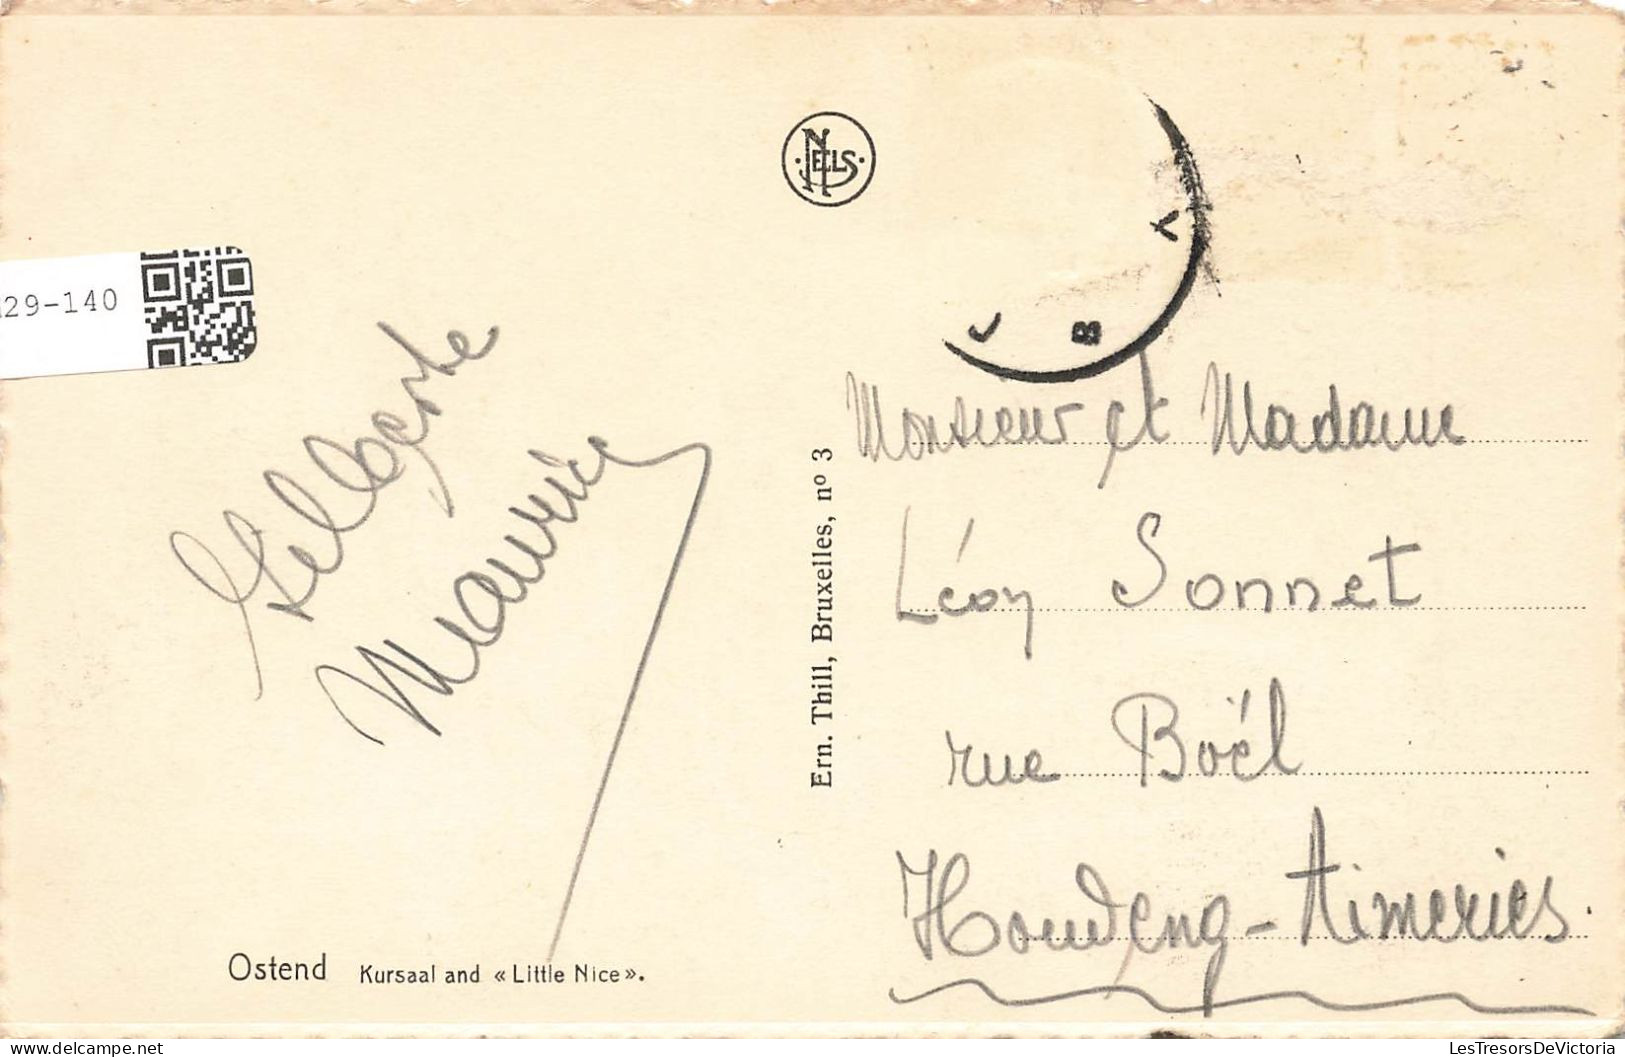 NELS
29-140
Maurice
Monsieur et Madame
Léon Sonnet
rue Boël
Houdeng-Aimeries.
Ern. Thill, Bruxelles, nº 3
Ostend Kursaal and « Little Nice ».
delcampe.net
LesTresorsDeVictoria